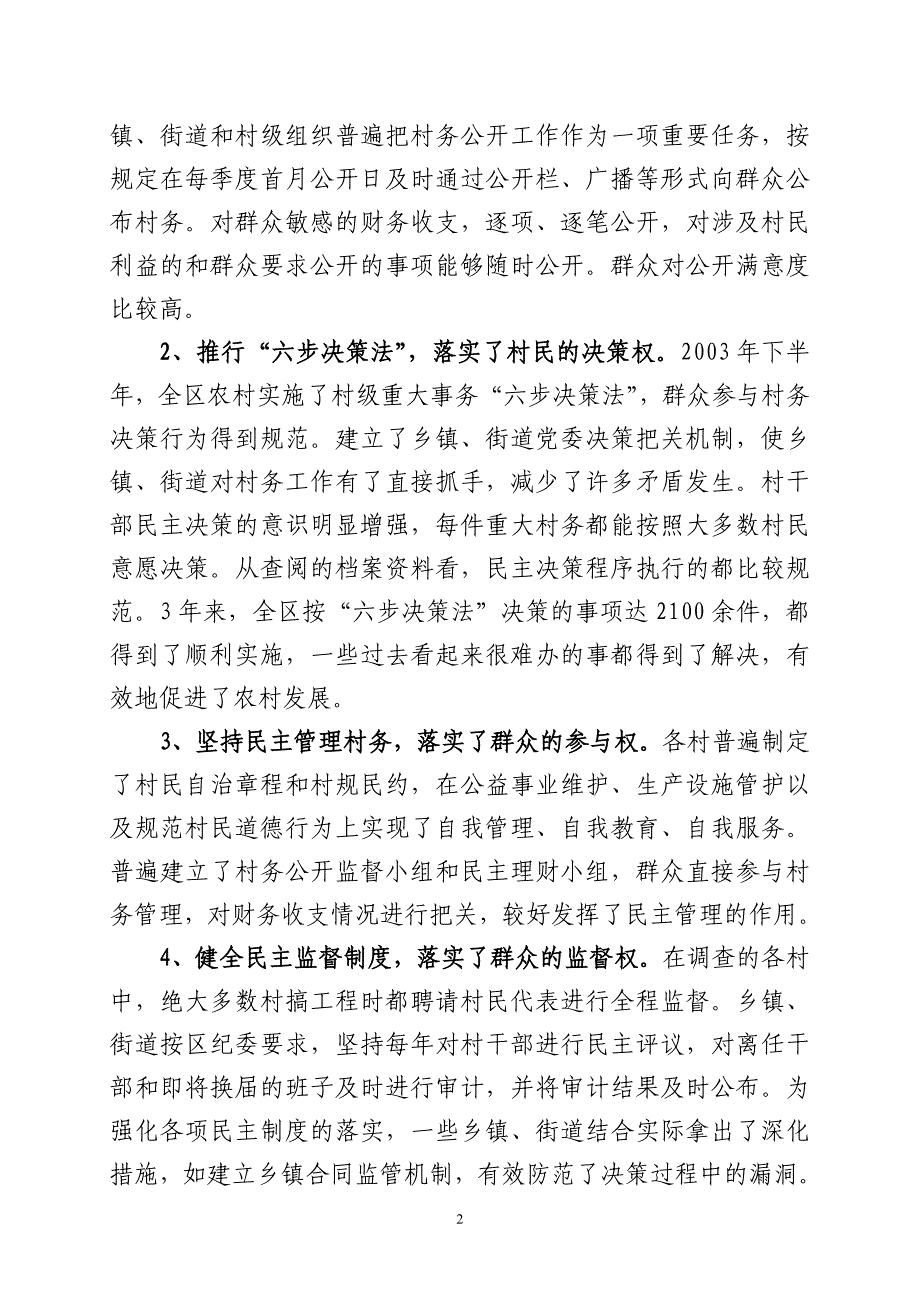 镇、街道和村级组织普遍把村务公开工作作为一项重要任务，按
规定在每季度首月公开日及时通过公开栏、广播等形式向群众公
布村务。对群众敏感的财务收支，逐项、逐笔公开，对涉及村民
利益的和群众要求公开的事项能够随时公开。群众对公开满意度
比较高。
2、推行“六步决策法”，落实了村民的决策权。2003 年下半
年，全区农村实施了村级重大事务“六步决策法”，群众参与村务
决策行为得到规范。建立了乡镇、街道党委决策把关机制，使乡
镇、街道对村务工作有了直接抓手，减少了许多矛盾发生。村干
部民主决策的意识明显增强，每件重大村务都能按照大多数村民
意愿决策。从查阅的档案资料看，民主决策程序执行的都比较规
范。3 年来，全区按“六步决策法”决策的事项达 2100 余件，都
得到了顺利实施，一些过去看起来很难办的事都得到了解决，有
效地促进了农村发展。
3、坚持民主管理村务，落实了群众的参与权。各村普遍制定
了村民自治章程和村规民约，在公益事业维护、生产设施管护以
及规范村民道德行为上实现了自我管理、自我教育、自我服务。
普遍建立了村务公开监督小组和民主理财小组，群众直接参与村
务管理，对财务收支情况进行把关，较好发挥了民主管理的作用。
4、健全民主监督制度，落实了群众的监督权。在调查的各村
中，绝大多数村搞工程时都聘请村民代表进行全程监督。乡镇、
街道按区纪委要求，坚持每年对村干部进行民主评议，对离任干
部和即将换届的班子及时进行审计，并将审计结果及时公布。为
强化各项民主制度的落实，一些乡镇、街道结合实际拿出了深化
措施，如建立乡镇合同监管机制，有效防范了决策过程中的漏洞。
2